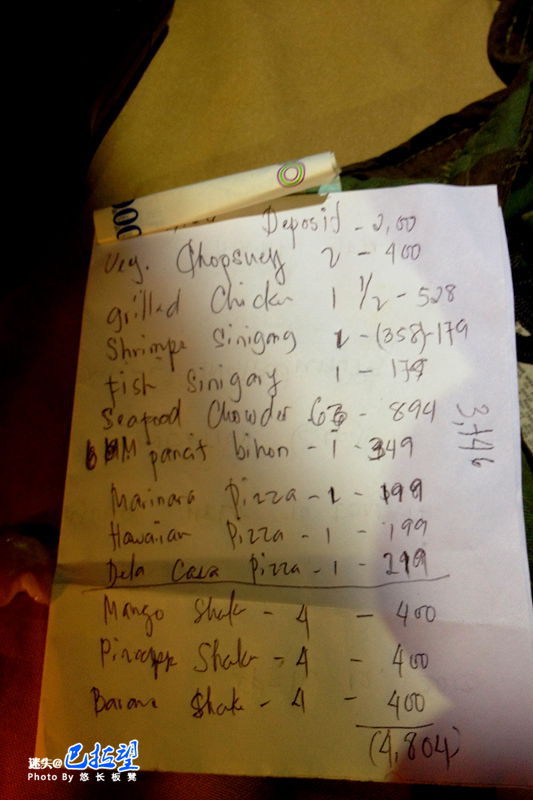 00
Deposit - 2,00
Veg. Chopsuey 2 - 400
grilled Chicken 1 1/2 - 528
Shrimps Sinigang 1 - (358) - 179
fish Sinigang 1 - 179
Seafood Chowder 6 - 894
pancit bihon - 1 - 349
3,146
Marinara Pizza - 1 - 199
Hawaiian Pizza - 1 - 199
Dela Casa Pizza - 1 - 219
Mango Shake - 4 - 400
Pineapple Shake - 4 - 400
Banana Shake - 4 - 400
(4,804)
迷失@巴拉望
Photo By 悠长板凳